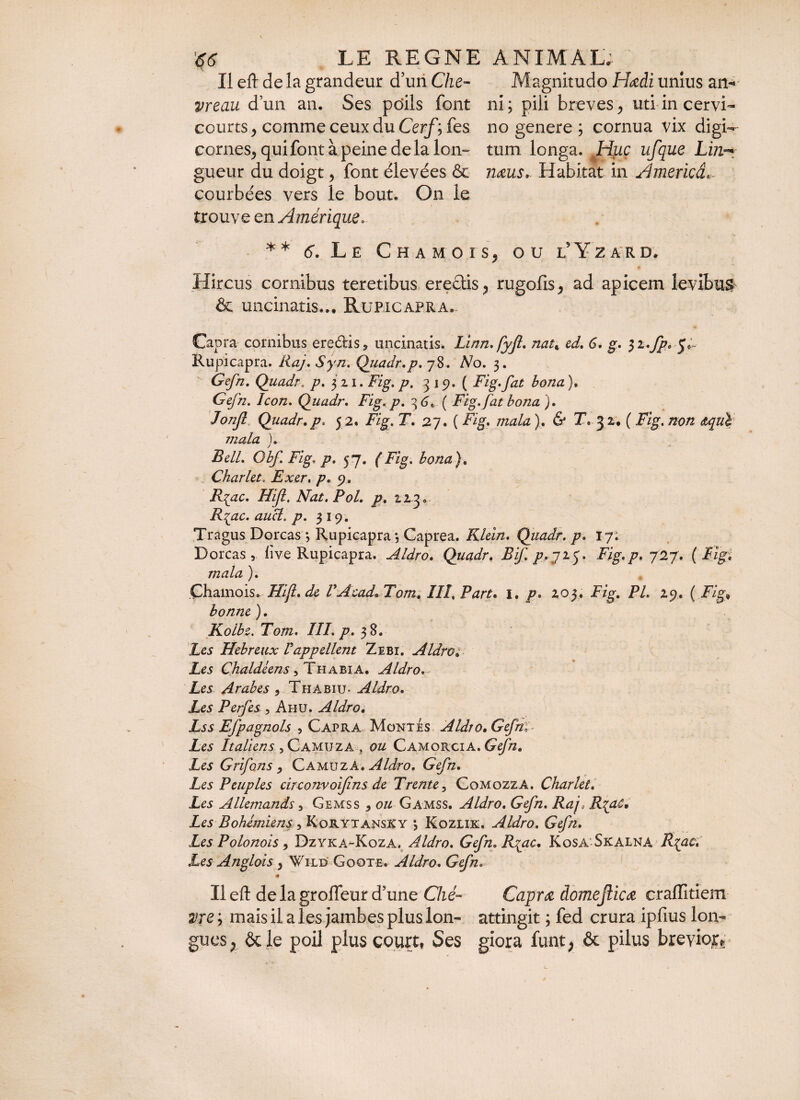 66 LE REGNE ANIMAL.
Il eſt de la grandeur d'un Che-
vreau d'un an. Ses poils ſont
courts, comme ceux du Cerf; ſes
cornes, qui ſont à peine de la lon-
gueur du doigt, ſont élevées &
courbées vers le bout. On le
trouve en Amérique.
Magnitudo Hædi unius an-
ni; pili breves, uti in cervi-
no genere; cornua vix digi-
tum longa. Huc uſque Lin-
næus. Habitat in Americâ.
** 6. LE CHAMOIS, OU L'YZARD.
Hircus cornibus teretibus erectis, rugoſis, ad apicem levibus
& uncinatis... RUPICAPRA.
Capra cornibus erectis, uncinatis. Linn. ſyſt. nat. ed. 6. g. 32. ſp. 5.
Rupicapra. Raj. Syn. Quadr. p. 78. No. 3.
Geſn. Quadr. p. 321. Fig. p. 319. ( Fig. ſat bona ).
Geſn. Icon. Quadr. Fig. p. 36. ( Fig. ſat bona ).
Jonſt. Quadr. p. 52. Fig. T. 27. ( Fig. mala ). & T. 32. ( Fig. non æquè
mala ).
Bell. Obſ. Fig. p. 57. ( Fig. bona ).
Charlet. Exer. p. 9.
Rzac. Hiſt. Nat. Pol. p. 223.
Rzac. auct. p. 319.
Tragus Dorcas; Rupicapra; Caprea. Klein. Quadr. p. 17.
Dorcas, ſive Rupicapra. Aldro. Quadr. Biſ. p. 725. Fig. p. 727. ( Fig.
mala ).
Chamois. Hiſt. de l'Acad. Tom. III. Part. 1. p. 203. Fig. Pl. 29. ( Fig.
bonne ).
Kolbe. Tom. III. p. 38.
Les Hebreux l'appellent ZEBI. Aldro.
Les Chaldéens, THABIA. Aldro.
Les Arabes, THABIU. Aldro.
Les Perſes, AHU. Aldro.
Lss Eſpagnols, CAPRA MONTÉS Aldro. Geſn.
Les Italiens, CAMUZA, ou CAMORCIA. Geſn.
Les Griſons, CAMUZA. Aldro. Geſn.
Les Peuples circonvoiſins de Trente, COMOZZA. Charlet.
Les Allemands, GEMSS, ou GAMSS. Aldro. Geſn. Raj. Rzac.
Les Bohémiens, KORYTANSKY; KOZLIK. Aldro. Geſn.
Les Polonois, DZYKA-KOZA. Aldro. Geſn. Rzac. KOSA-SKALNA Rzac.
Les Anglois, WILD GOOTE. Aldro. Geſn.
Il eſt de la groſſeur d'une Ché-
vre; mais il a les jambes plus lon-
gues, & le poil plus court. Ses
Capræ domeſticæ craſſitiem
attingit; ſed crura ipſius lon-
giora ſunt, & pilus brevior.